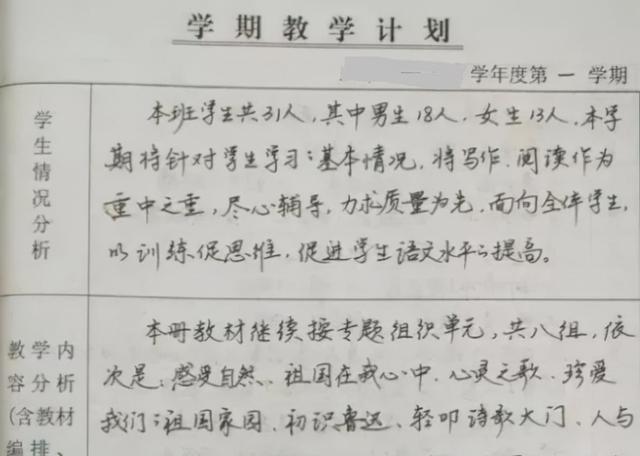 学期教学计划
学年度第一学期
学生情况分析
本班学生共31人，其中男生18人，女生13人，本学
期将针对学生学习的基本情况，将写作、阅读作为
重中之重，尽心辅导，力求质量为先，面向全体学生，
以训练促思维，促进学生语文水平的提高。
教学内
容分析
(含教材
编排、
本册教材继续按专题组织单元，共八组，依
次是：感受自然、祖国在我心中、心灵之歌、珍爱
我们的祖国家园、初识鲁迅、轻叩诗歌大门、人与